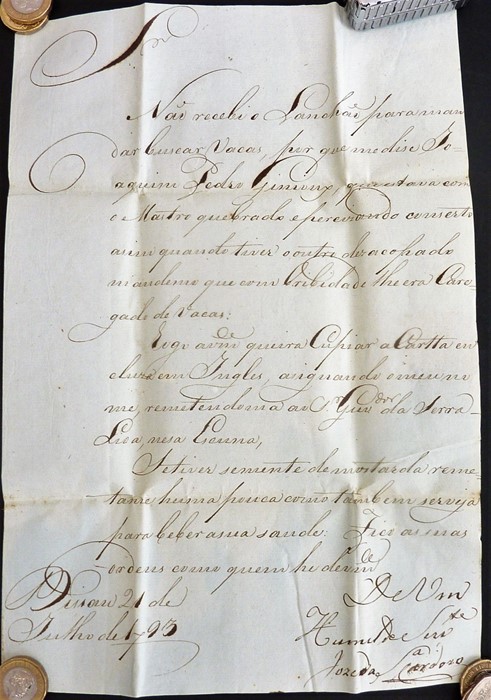 Snr
Não recebi o Lanchão para man
dar buscar Vacas, por que me dise Jo-
aquim Pedro que estava com
o Mastro quebrado e percizando conserto
asim quando tiver o outro dezacopado
mandemo que com brividade lhe era Care-
gado de Vacas:
Rogo a vm ce queira Cupiar a Cartta en
cluza em Ingles, asignando o meu no
me, remetendoma ao Sr Gov dor da Serra
Lioa, nesa Escuna,
Se tiver semente de mostarda reme
tame huma pouca como tãobem serveja
para beber a sua saude: Fico as suas
ordens como quem he de vm ce
Bissau 21 de
Julho de 1793
De Vm
Humilde Serv te
Joze da Sa Cardozo